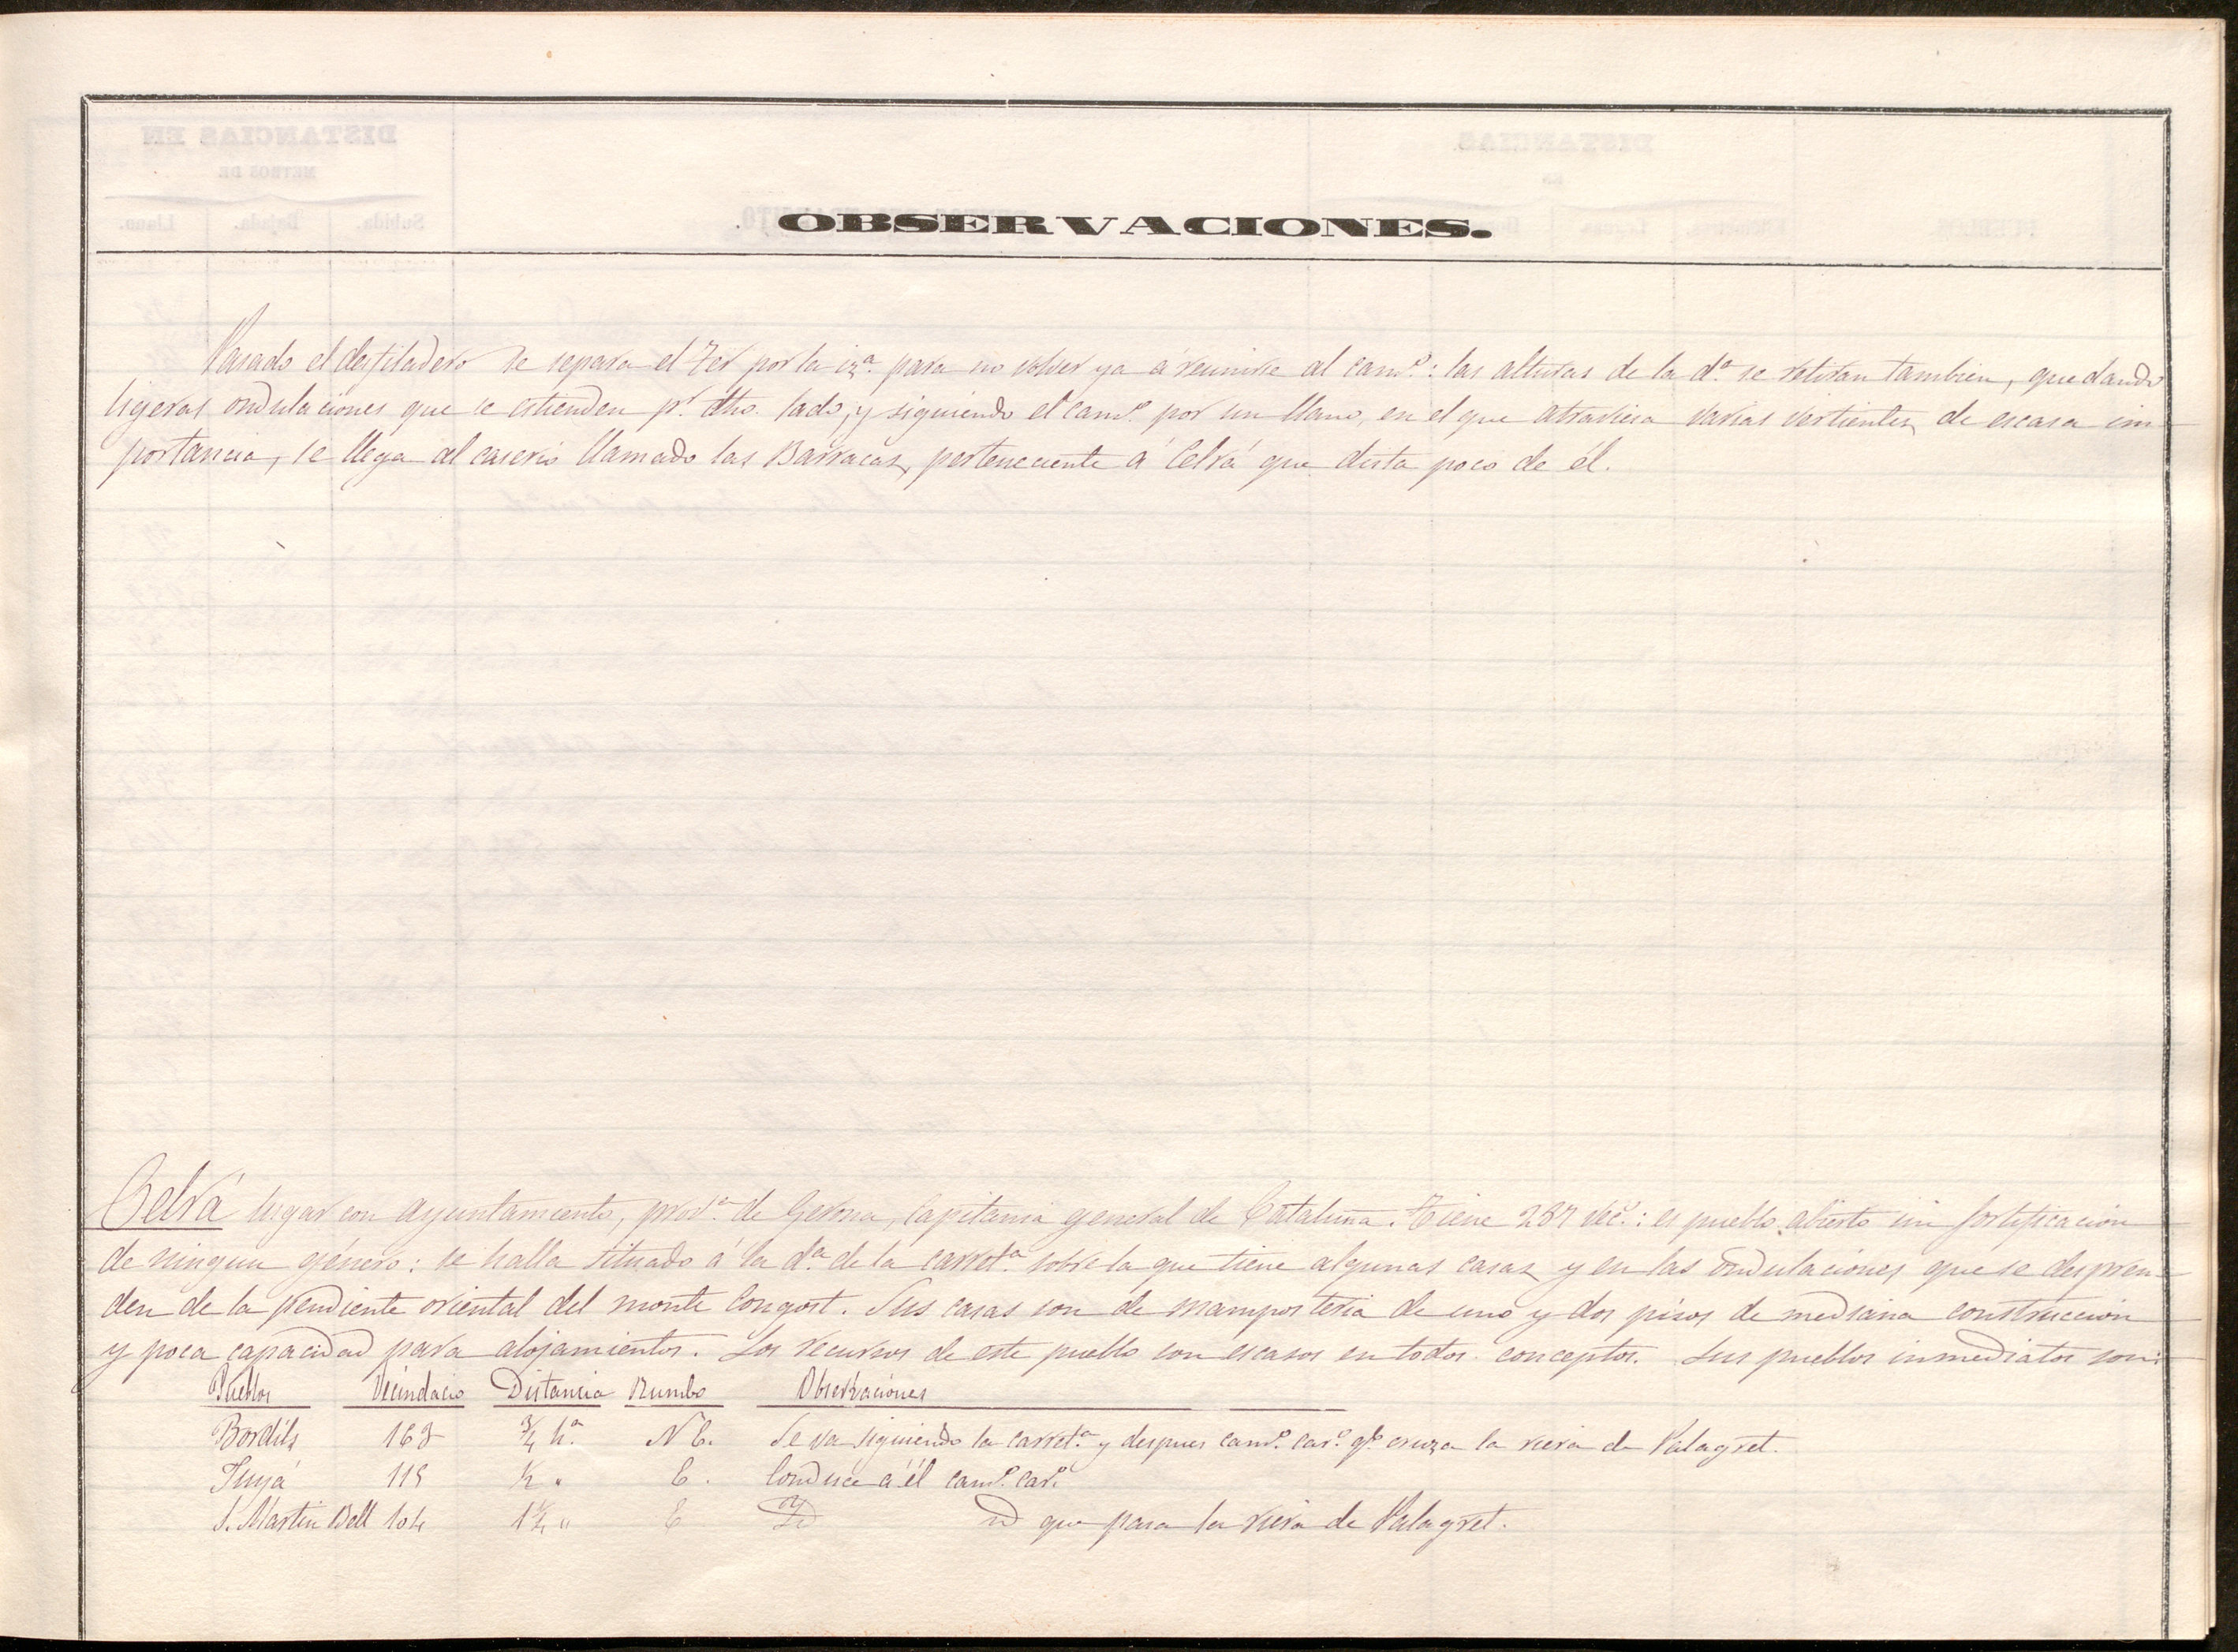 OBSERVACIONES.
Pasado el desfiladero se separa el Ter por la izª. para no volver ya á reunirse al camº.: las alturas de la dª. se retiran tambien, quedando
ligeras ondulaciones que se estienden pr. dho. lado, y siguiendo el camº. por un llano, en el que atraviesa varias vertientes de escasa im-
portancia, se llega al caserio llamado las Barracas, perteneciente á Celrá que dista poco de él.
Celrá lugar con ayuntamiento, provª. de Gerona, Capitania general de Cataluña. Tiene 287 vecs.: es pueblo abierto sin fortificacion
de ningun género: se halla situado á la dª. de la carretª. sobre la que tiene algunas casas y en las ondulaciones que se despren-
den de la pendiente oriental del monte Congost. Sus casas son de mamposteria de uno y dos pisos de mediana construccion
y poca capacidad para alojamientos. Los recursos de este pueblo son escasos en todos conceptos. Sus pueblos inmediatos son:
Pueblos Vecindario Distancia Rumbo Observaciones
Bordils 163 3/4 hª. N E. Se va siguiendo la carretª. y despues camº. carº. qe. cruza la riera de Palagret.
Juyá 115 1/2 " E. Conduce á él camº. carº.
S. Martin Bell 104 1 1/4 " E Id id que pasa la riera de Palagret.